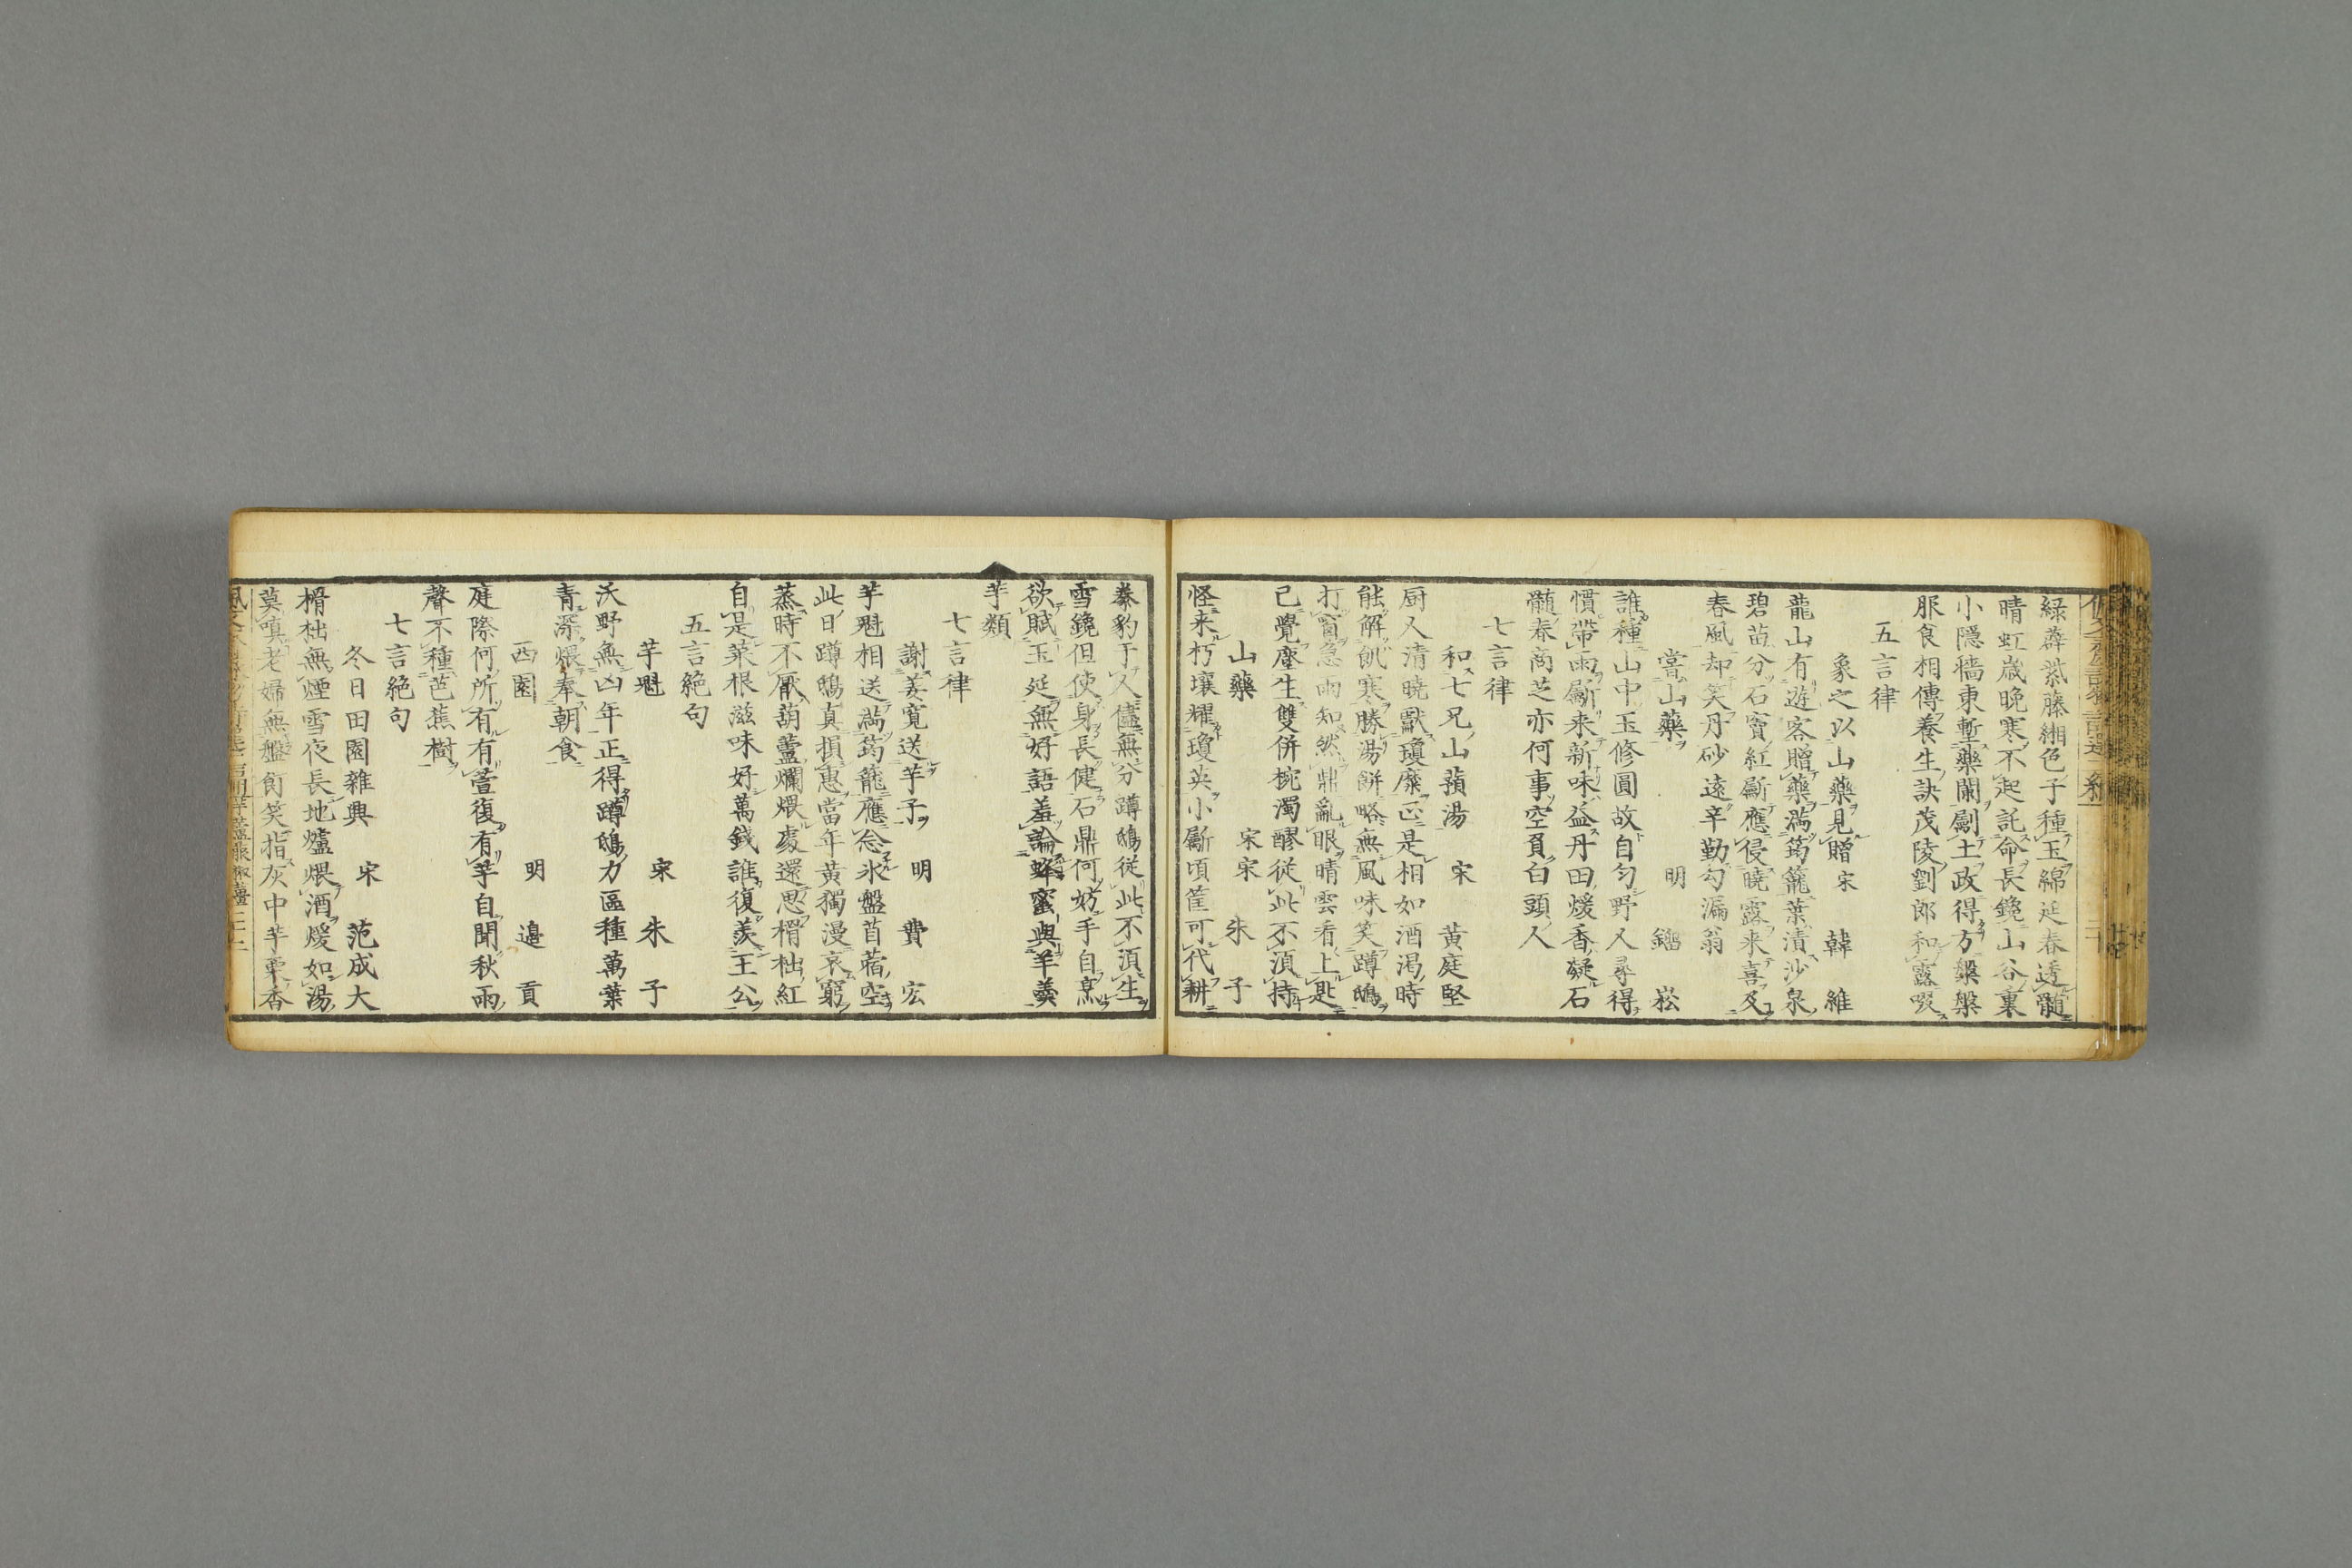 綠薜紫藤緗色子種玉綿延春透髓
晴虹歳晩寒不起託命長鑱山谷裏
小隱墻東塹藥闌劚土政得方槃槃
服食相傳養生訣茂陵劉郎和露啜
五言律
象之以山藥見贈 宋 韓維
龍山有遊客贈藥滿筠籠葉漬沙泉
碧苗分石竇紅劚應侵曉露来喜及
春風却笑丹砂遠辛勤勾漏翁
嘗山藥 明 鎦崧
誰種山中玉修圓故自勻野人尋得
慣帶雨劚来新味益丹田煖香凝石
髓春商芝亦何事空負白頭人
七言律
和七兄山蕷湯 宋 黄庭堅
厨人清曉獻瓊糜正是相如酒渇時
能解飢寒勝湯餅略無風味笑蹲鴟
打窗急雨知然鼎亂眼晴雲看上匙
已覺塵生雙併椀濁醪從此不湏持
山藥 宋宋 朱子
怪来朽壤耀瓊英小劚頃筐可代耕
豢豹于人儘無分蹲鴟從此不湏生
雪鑱但使身長健石鼎何妨手自烹
欲賦玉延無好語羞論蜂蜜與羊羹
芋類
七言律
謝姜寛送芋子 明 費宏
芋魁相送滿筠籠應念氷盤苜蓿空
此日蹲鴟真損惠當年黄獨漫哀窮
蒸時不厭葫蘆爛煨處還思榾柮紅
自是菜根滋味好萬錢誰復羡王公
五言絶句
芋魁 宋 朱子
沃野無凶年正得蹲鴟力區種萬葉
青深煨奉朝食
西園 明 邉貢
庭際何所有有萱復有芋自聞秋雨
聲不種芭蕉樹
七言絶句
冬日田園雜興 宋 范成大
榾柮無煙雪夜長地爐煨酒煖如湯
莫嗔老婦無盤飣笑指灰中芋栗香